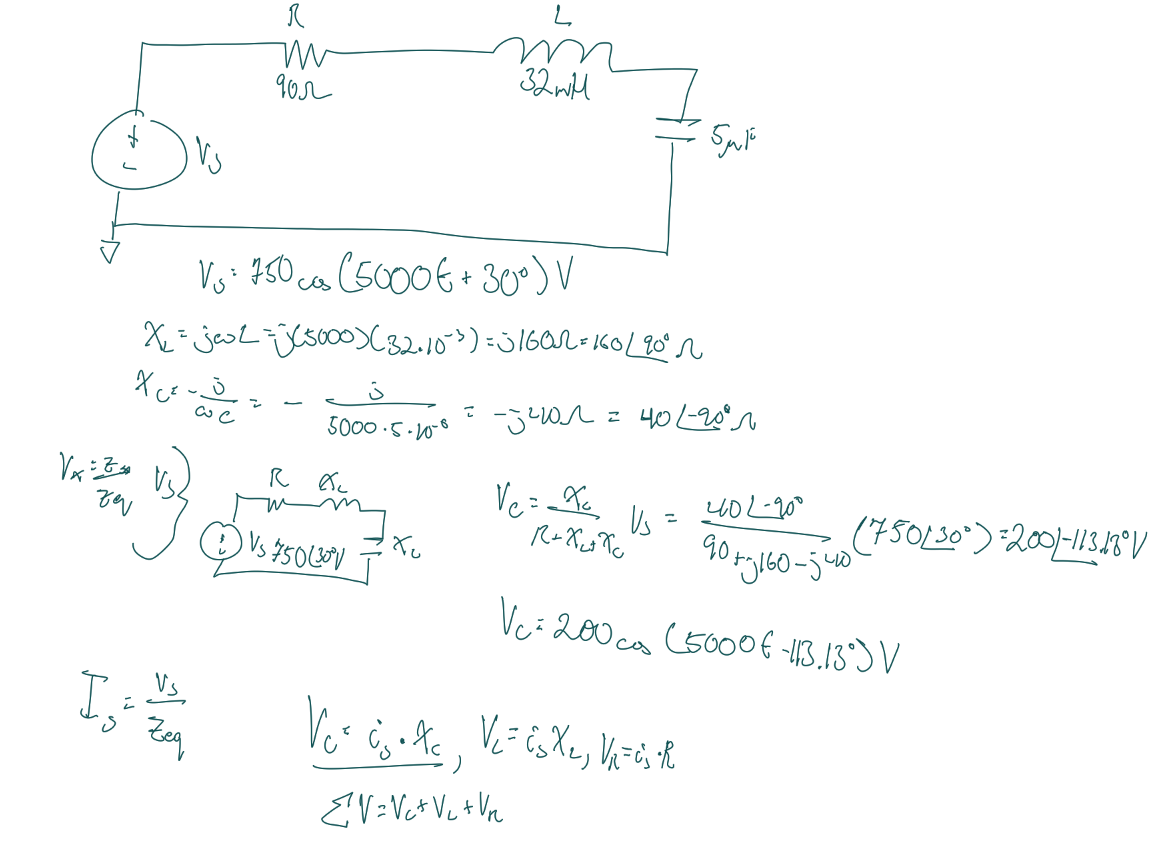 R
L
90Ω
32mH
+
-
Vs
5μF
Vs = 750 cos (5000t + 30°) V
X_L = jωL = j(5000)(32·10⁻³) = j160Ω = 160∠90° Ω
X_C = -j/ωC = - j/5000·5·10⁻⁶ = -j40Ω = 40∠-90° Ω
Vx = Zx/Zeq Vs}
R X_L
Vs 750∠30°V X_C
V_C = X_C/R+X_L+X_C Vs = 40∠-90°/90+j160-j40 (750∠30°) = 200∠-113.13° V
V_C = 200 cos (5000t -113.13°) V
Is = Vs/Zeq
V_C = is · X_C, V_L = is X_L, V_R = is · R
ΣV = V_C + V_L + V_R